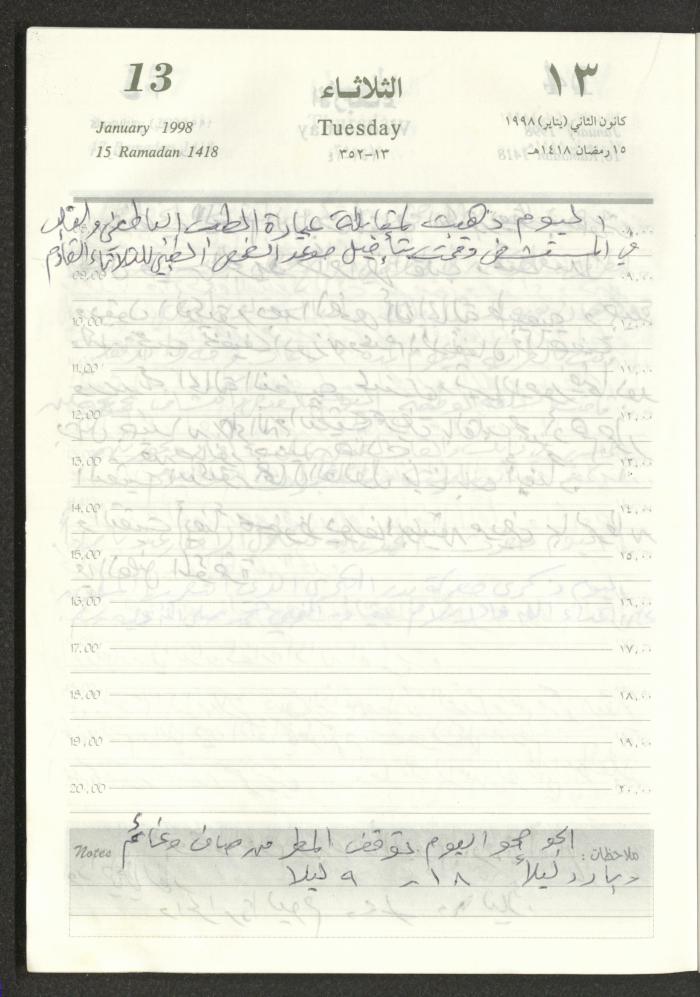 13 الثلاثاء ١٣
January 1998 Tuesday كانون الثاني (يناير) ١٩٩٨
15 Ramadan 1418 ١٣-٣٥٢ ١٥ رمضان ١٤١٨هـ
اليوم ذهبت لمقابلة عيادة الطب الباطني
في المستشفى وقمت بتأجيل موعد الفحص الطبي للثلاثاء القادم
09,00 ٠٩,٠٠
10,00 ١٠,٠٠
11,00 ١١,٠٠
12,00 ١٢,٠٠
13,00 ١٣,٠٠
14,00 ١٤,٠٠
15,00 ١٥,٠٠
16,00 ١٦,٠٠
17,00 ١٧,٠٠
18,00 ١٨,٠٠
19,00 ١٩,٠٠
20,00 ٢٠,٠٠
Notes ملاحظات: الجو صحو اليوم توقف المطر صاف وغائم
وبارد ليلاً ١٨ - ٩ ليلا